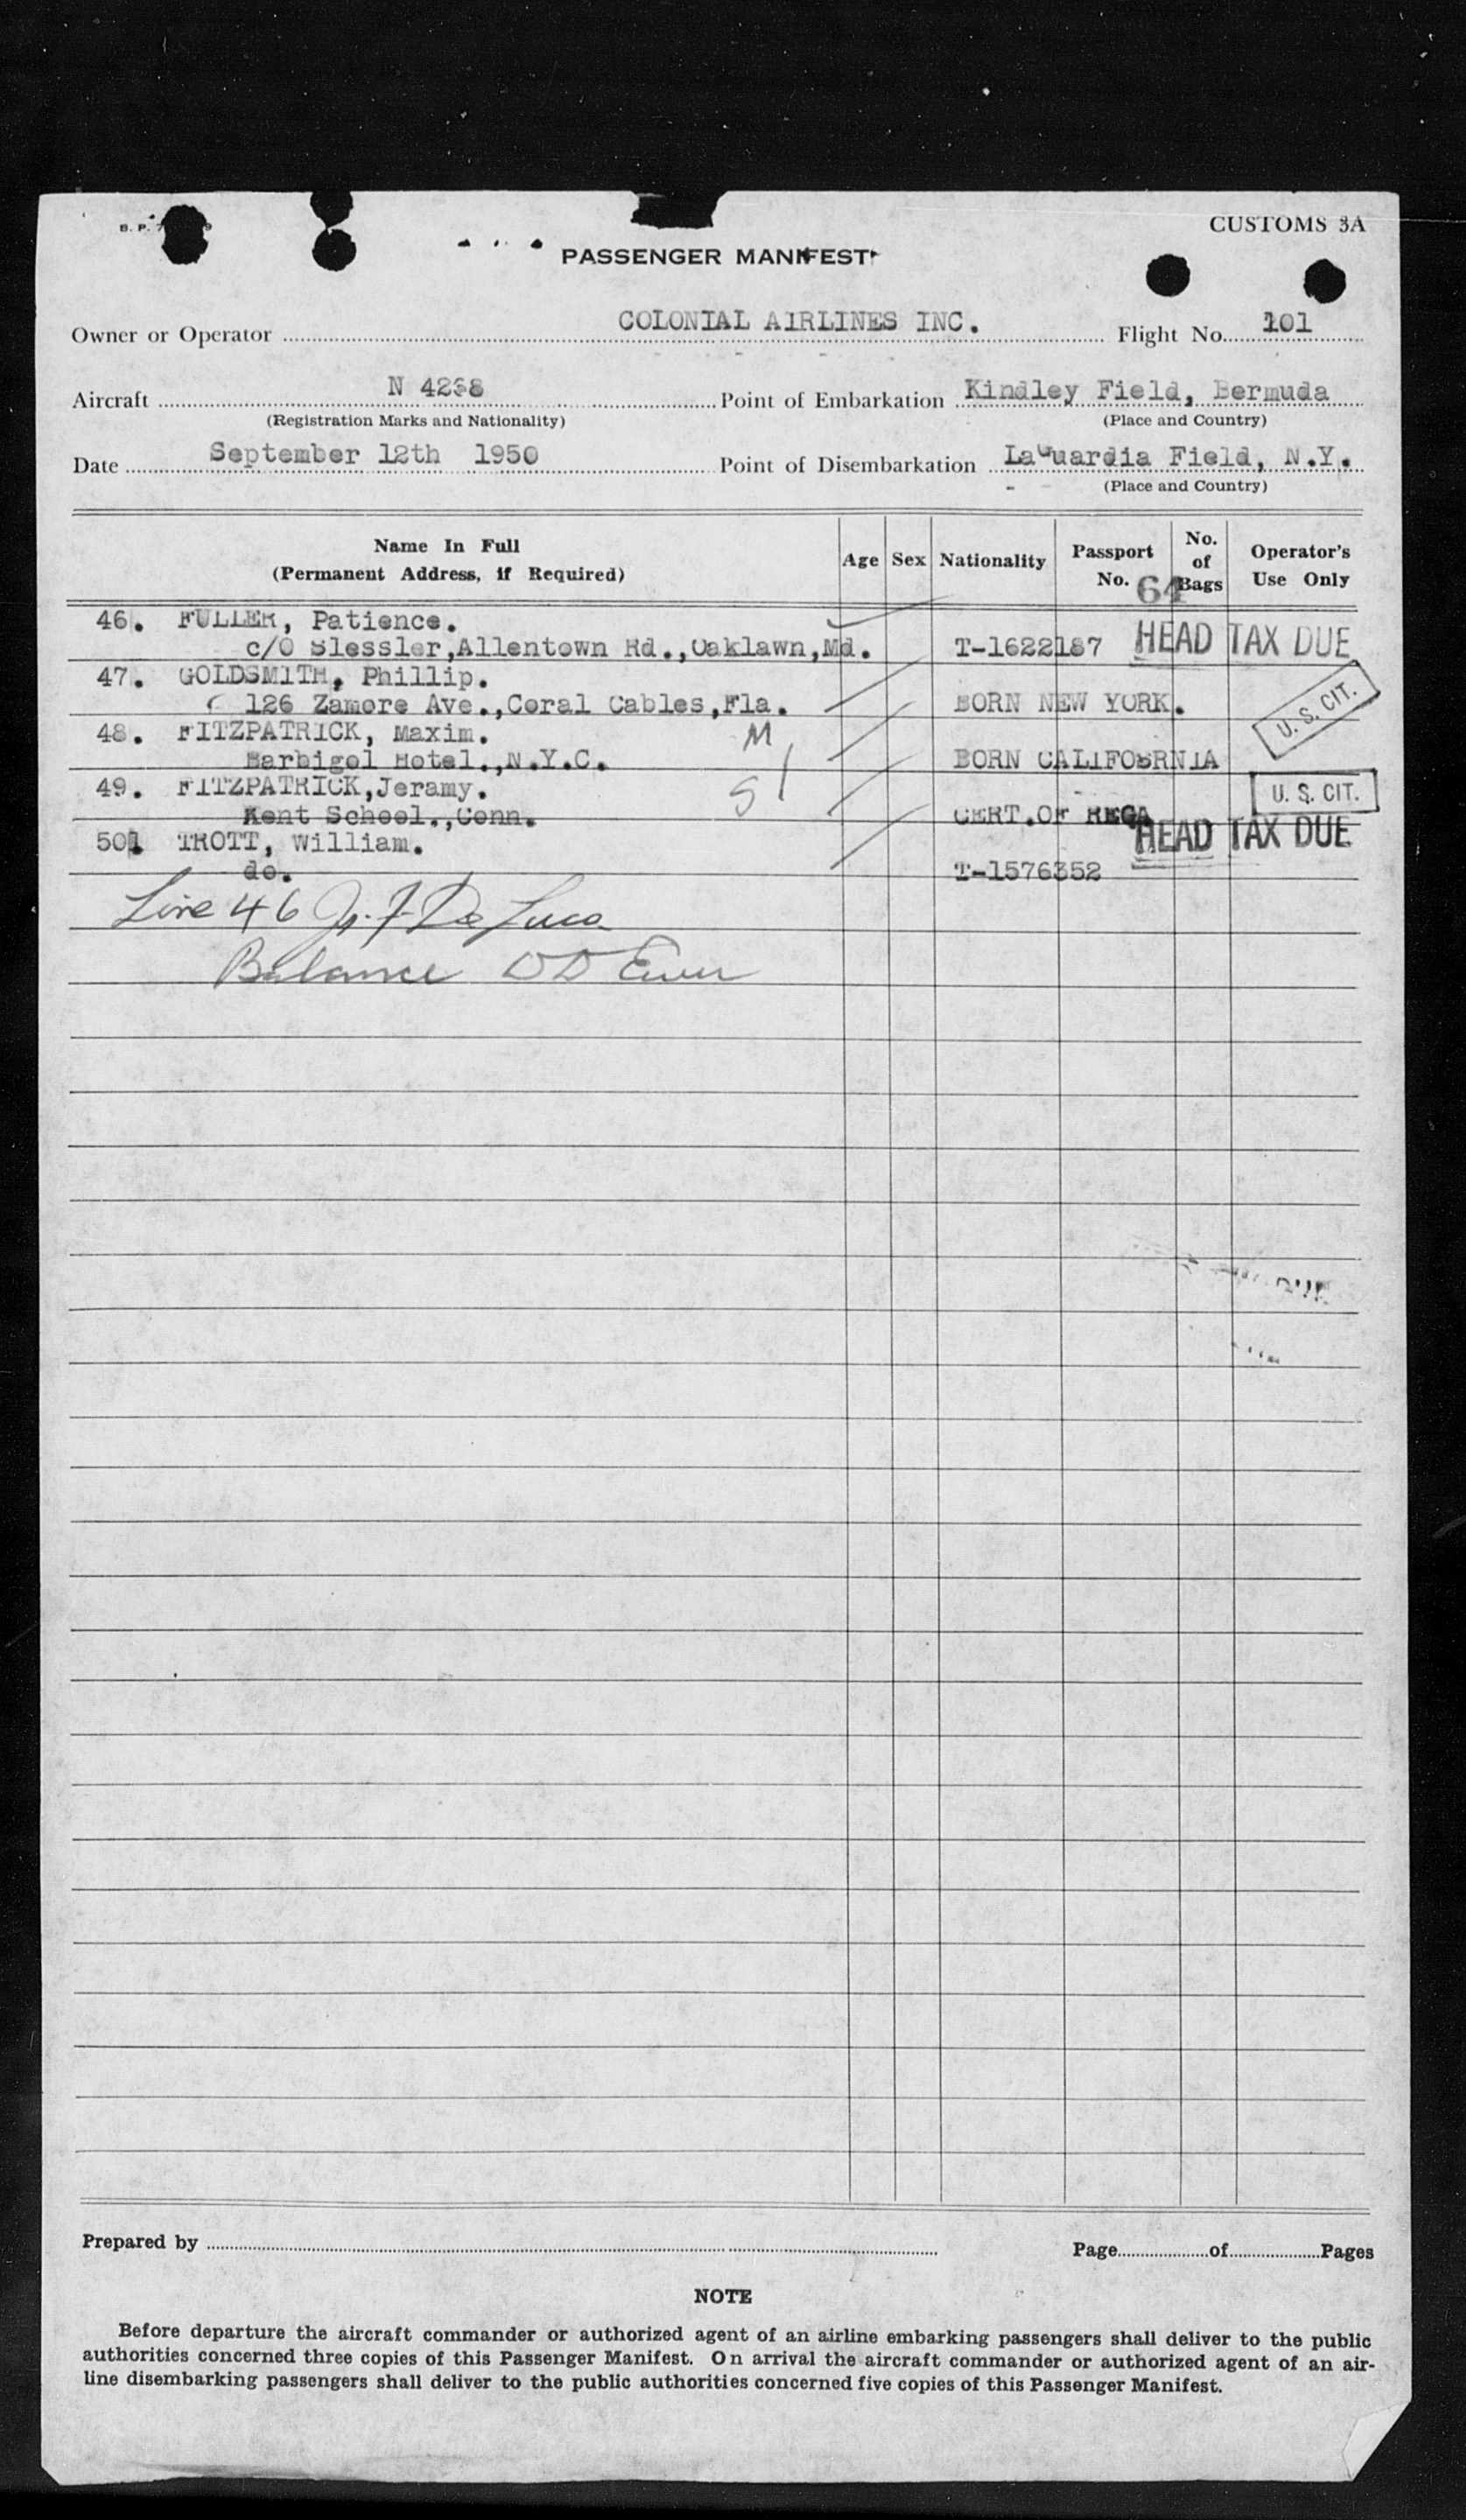 CUSTOMS 3A
PASSENGER MANIFEST
Owner or Operator COLONIAL AIRLINES INC. Flight No. 101
Aircraft N 4238 Point of Embarkation Kindley Field, Bermuda
(Registration Marks and Nationality) (Place and Country)
Date September 12th 1950 Point of Disembarkation LaGuardia Field, N.Y.
(Place and Country)
Name In Full (Permanent Address, if Required) Age Sex Nationality Passport No. No. of Bags Operator's Use Only
64
46. FULLER, Patience.
c/O Slessler,Allentown Rd.,Oaklawn,Md. T-1622187 HEAD TAX DUE
47. GOLDSMITH, Phillip.
126 Zamore Ave.,Coral Cables,Fla. BORN NEW YORK. U. S. CIT.
48. FITZPATRICK, Maxim. M
Barbigol Hotel.,N.Y.C. BORN CALIFOBRNIA
49. FITZPATRICK,Jeramy. S U. S. CIT.
Kent School.,Conn. CERT.OF REGA
50. TROTT, William. HEAD TAX DUE
do. T-1576352
Line 46 J. De Luca
Balance
Prepared by Page of Pages
NOTE
Before departure the aircraft commander or authorized agent of an airline embarking passengers shall deliver to the public
authorities concerned three copies of this Passenger Manifest. On arrival the aircraft commander or authorized agent of an air-
line disembarking passengers shall deliver to the public authorities concerned five copies of this Passenger Manifest.